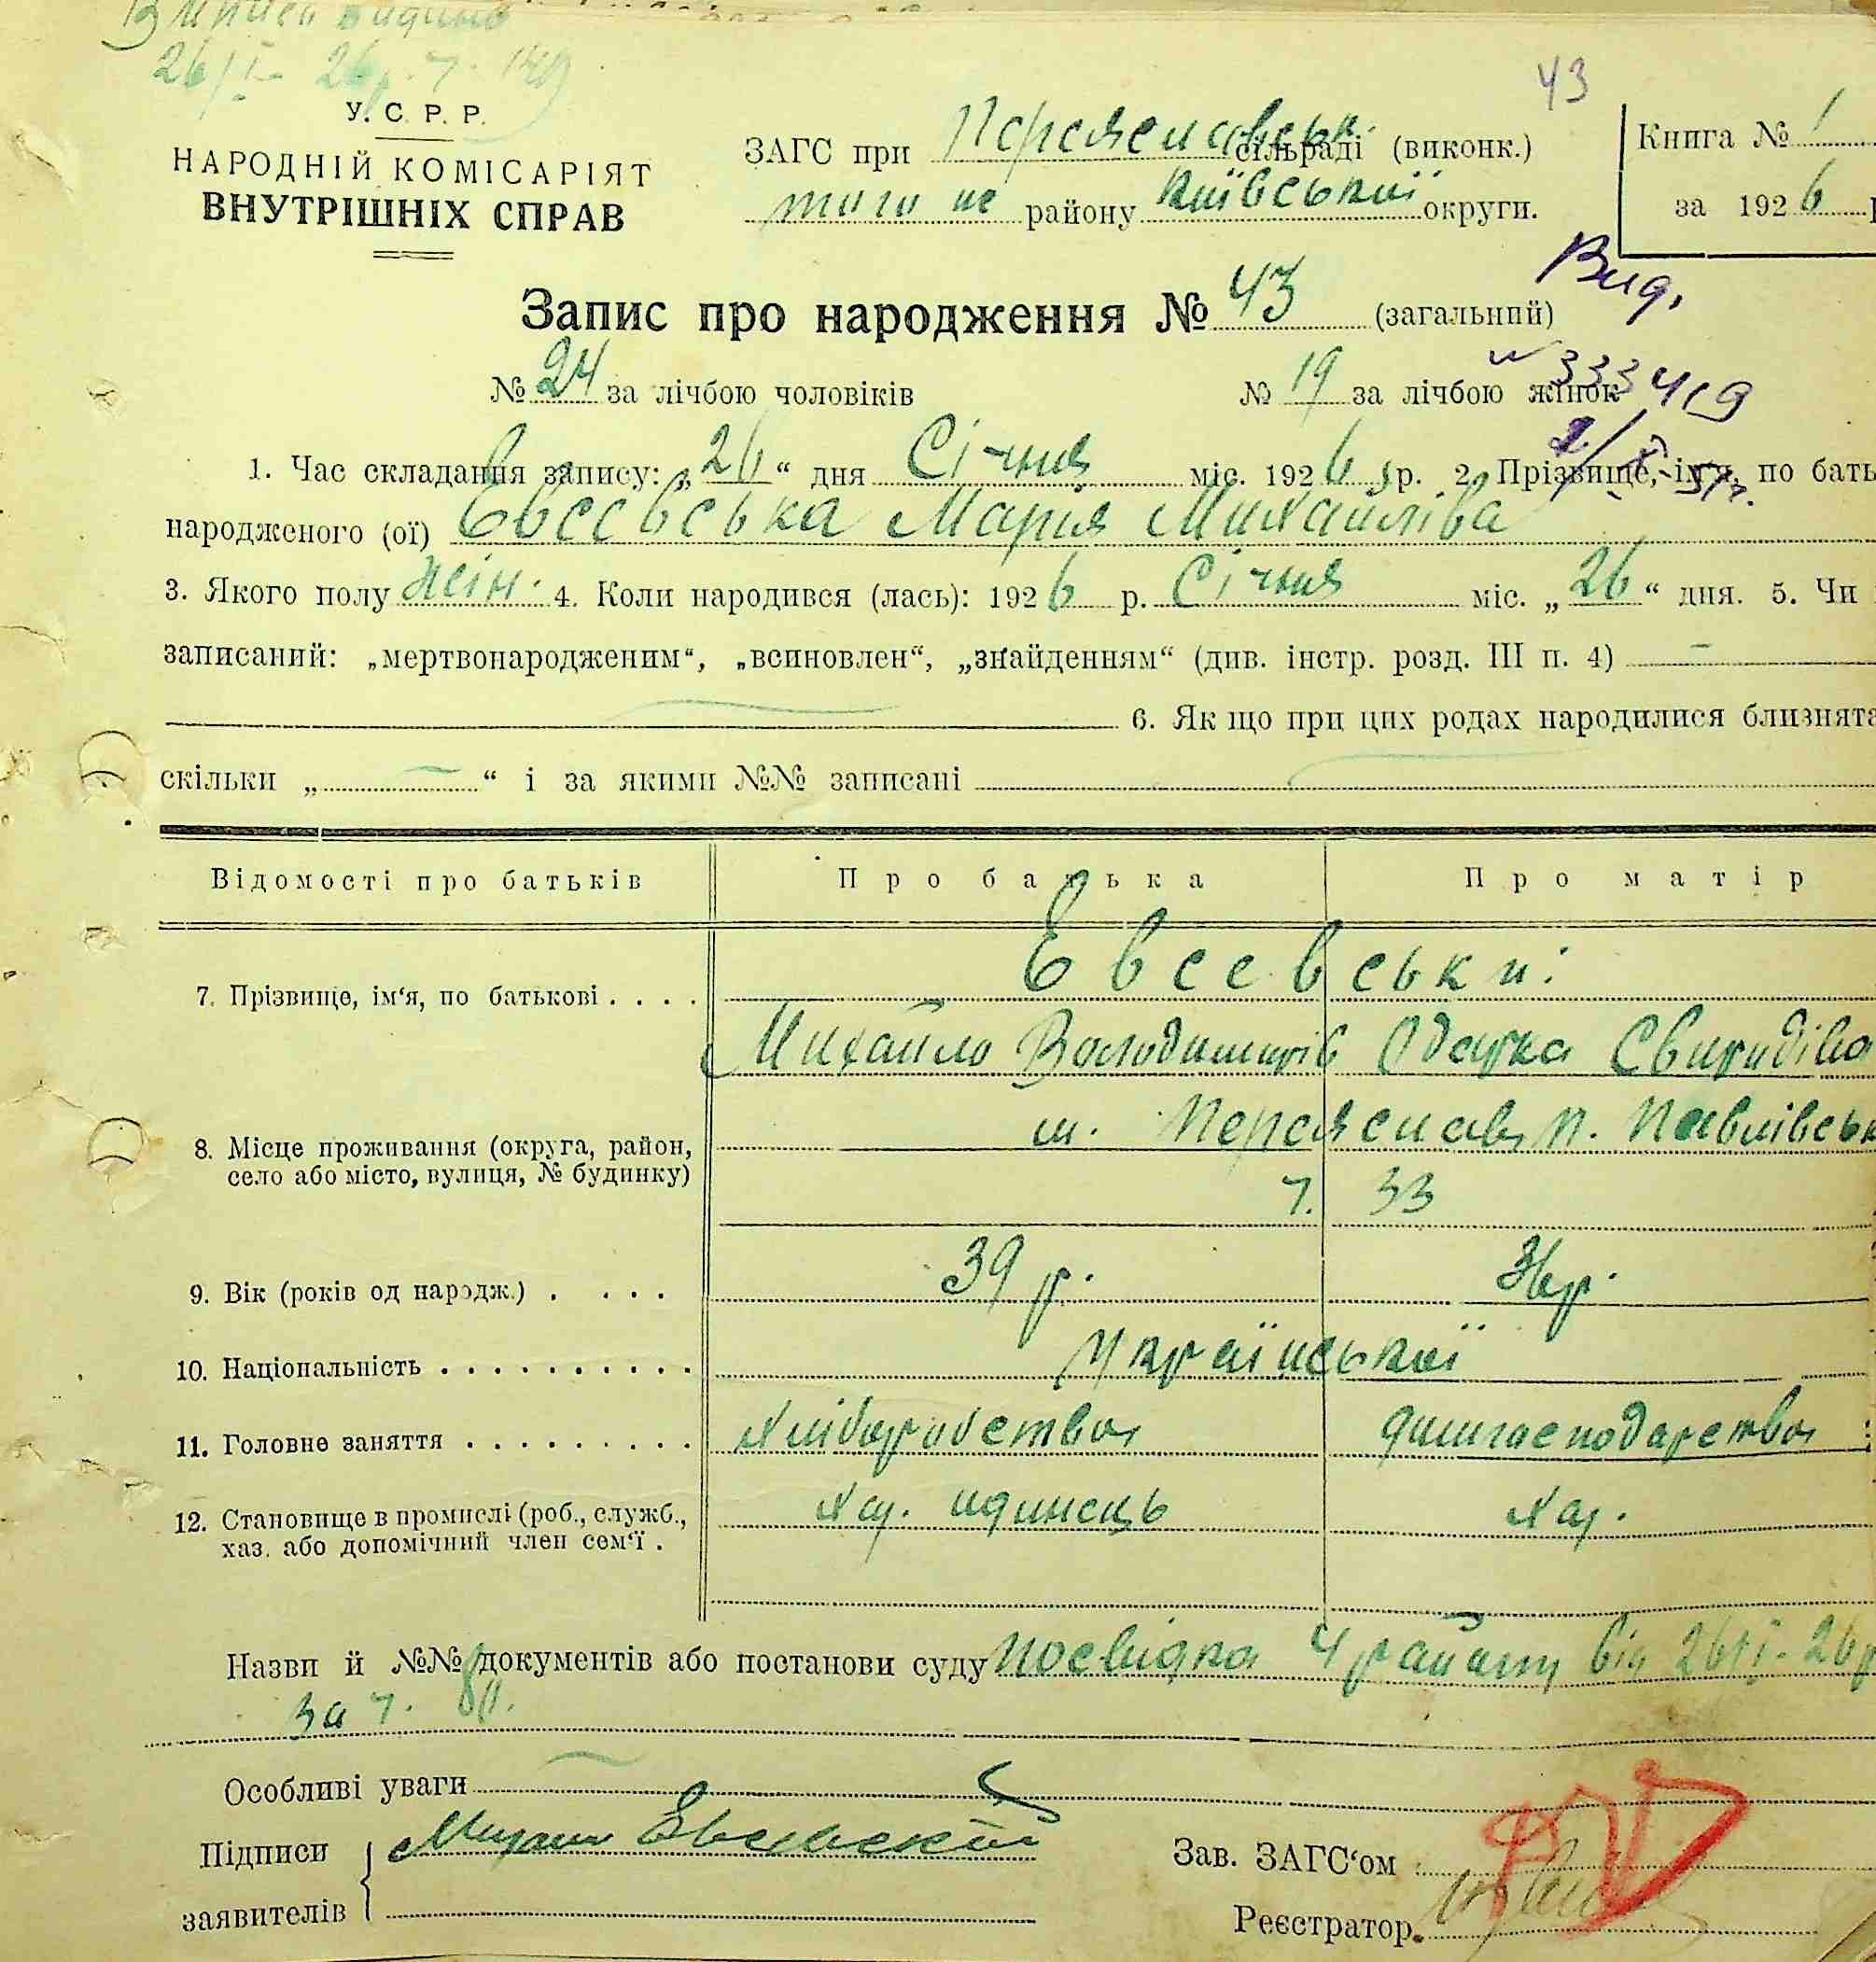 Виписи видано
43
У. С. Р. Р.
НАРОДНІЙ КОМІСАРІЯТ
ВНУТРІШНІХ СПРАВ
ЗАГС при Переяславськ. сільраді (виконк.)
того же району Київської округи.
Книга № 1
за 1926 р
Запис про народження № 43 (загальний)
Вид.
№ 24 за лічбою чоловіків № 19 за лічбою жінок
№ 333419
1. Час складання запису: „26“ дня Січня міс. 1926 р. 2. Прізвище, ім'я, по бать
народженого (ої) Евсевська Марія Михайліва
3. Якого полу жін. 4. Коли народився (лась): 1926 р. Січня міс. „26“ дня. 5. Чи
записаний: „мертвонародженим“, „всиновлен“, „знайденням“ (див. інстр. розд. III п. 4) –
6. Як що при цих родах народилися близнята
скільки „ – “ і за якими №№ записані
Відомості про батьків Про батька Про матір
Евсевськи:
7. Прізвище, ім‘я, по батькові . . . .
Михайло Володимирів Одарка Свиридівна
м. Переяслав, п. Павлівськ
8. Місце проживання (округа, район,
село або місто, вулиця, № будинку)
ч. 33
9. Вік (років од народж.) . . . . 39 р.
10. Національність . . . . . . . . . . Української
11. Головне заняття . . . . . . . . . Хліборобство домгасподарство
12. Становище в промислі (роб., служб.,
хаз. або допомічний член сем‘ї .
Хаз. одинець Хаз.
Назви й №№ документів або постанови суду Посвідка 4 району від 26/I-26р
за ч. 80.
Особливі уваги
Підписи
заявителів
Михаил Евсевский
Зав. ЗАГС‘ом
Реєстратор.